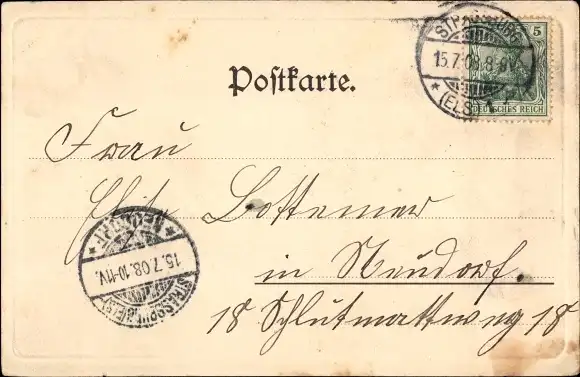 STRASSBURG
15.7.08.8-9V.
* (ELS.) 1 *
5
DEUTSCHES REICH
Postkarte.
Frau
Bottemer
in Neudorf.
18 Schlutmattweg 18
* NEUDORF *
15.7.08.10-11V.
STRASSBURG (ELS.)